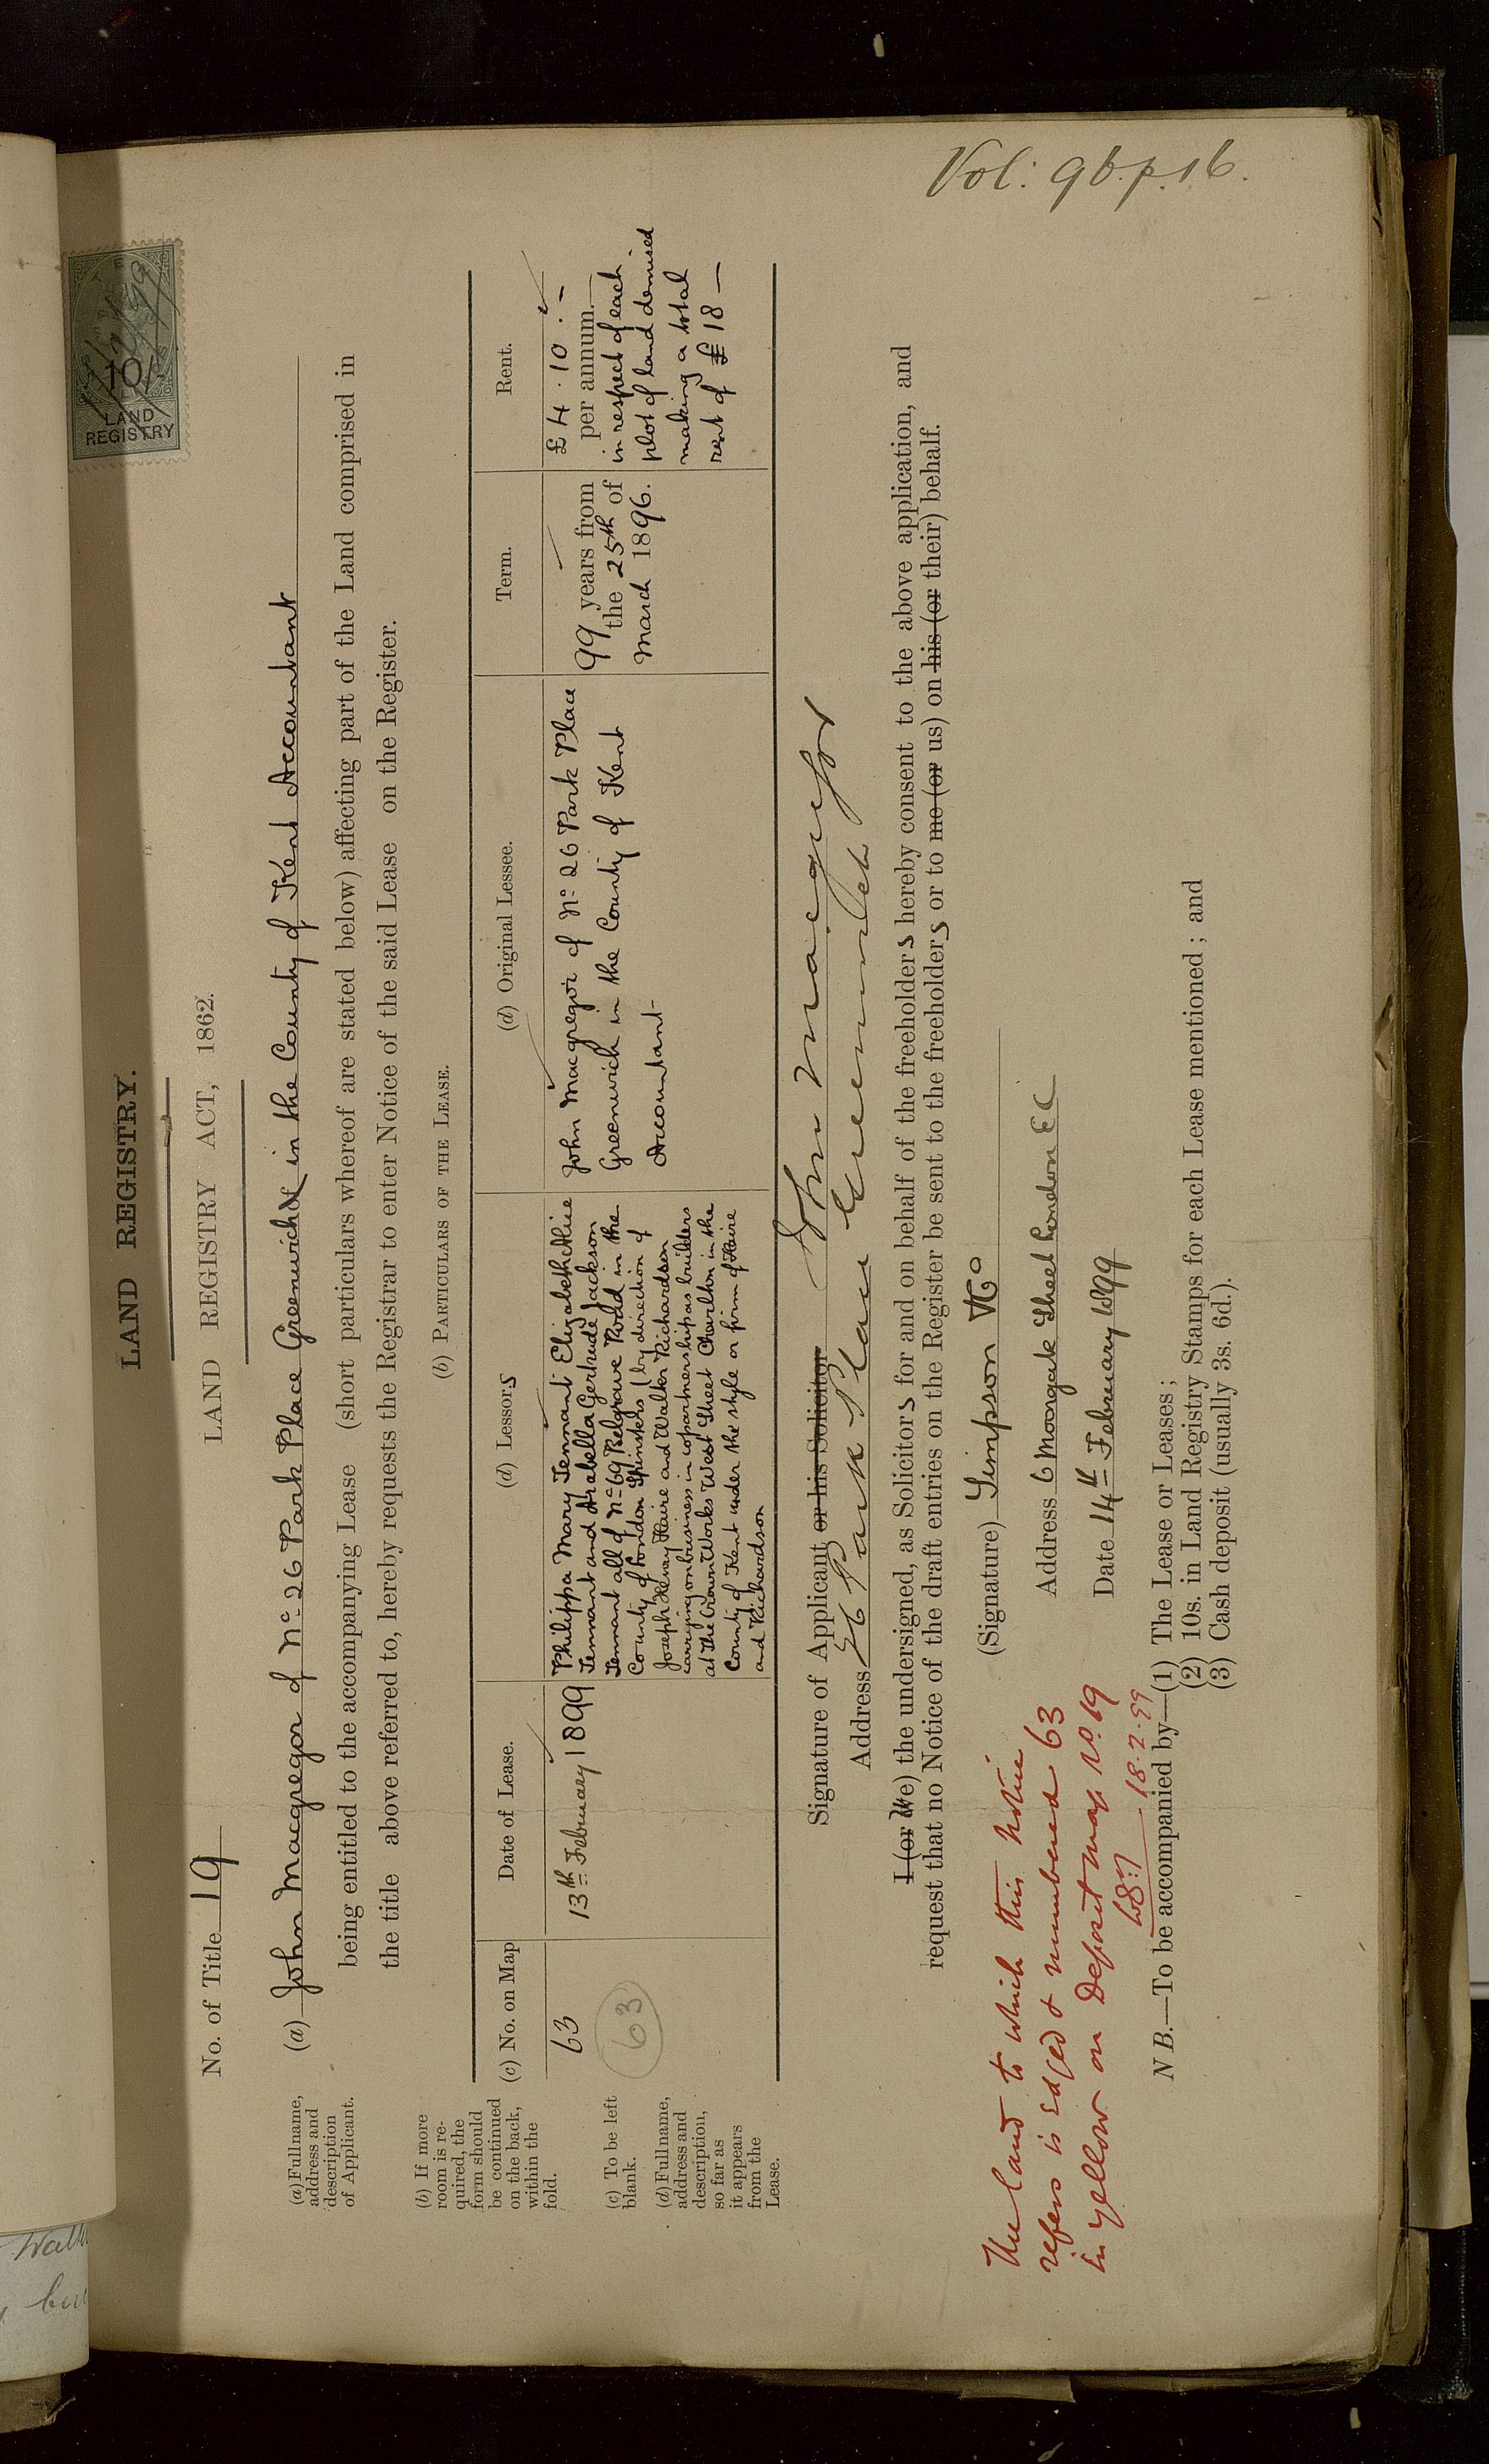 LAND REGISTRY.
10/-
LAND
REGISTRY
No. of Title 19
LAND REGISTRY ACT, 1862.
(a) John Macgregor of No 26 Park Place Greenwich of in the County of Kent Accountant
being entitled to the accompanying Lease (short particulars whereof are stated below) affecting part of the Land comprised in
the title above referred to, hereby requests the Registrar to enter Notice of the said Lease on the Register.
(a) Full name,
address and
description
of Applicant.
(b) PARTICULARS OF THE LEASE.
(b) If more
room is re-
quired, the
form should
be continued
on the back,
within the
fold.
(c) To be left
blank.
(d) Full name,
address and
description,
so far as
it appears
from the
Lease.
(c) No. on Map
63
63
Date of Lease.
13th February 1899
(d) Lessors
Philippa Mary Tennant Elizabeth Alice
Tennant and Arabella Gertrude Jackson
Tennant all of No 69 Belgrave Road in the
County of London Spinsters (by direction of
Joseph Henry Haire and Walter Richardson
carrying on business in copartnership as builders
at The Crown Works West Street Charlton in the
County of Kent under the style or firm of Haire
and Richardson
(d) Original Lessee.
John Macgregor of No 26 Park Place
Greenwich in the County of Kent
Accountant
Term.
99 years from
the 25th of
March 1896.
Rent.
£4.10.-
per annum.
in respect of each
plot of land demised
making a total
rent of £18 —
Signature of Applicant or his Solicitor John Macgregor
Address 26 Park Place Greenwich
I (or We) the undersigned, as Solicitors for and on behalf of the freeholders hereby consent to the above application, and
request that no Notice of the draft entries on the Register be sent to the freeholders or to me (or us) on his (or their) behalf.
(Signature) Simpson & Co
Address 6 Moorgate Street London EC
Date 14th February 1899
The land to which this notice
refers is edged & numbered 63
in yellow on Deposit map No. 19
18.2.99
N B.—To be accompanied by—(1) The Lease or Leases;
(2) 10s. in Land Registry Stamps for each Lease mentioned; and
(3) Cash deposit (usually 3s. 6d.).
Vol: 96. p. 16.